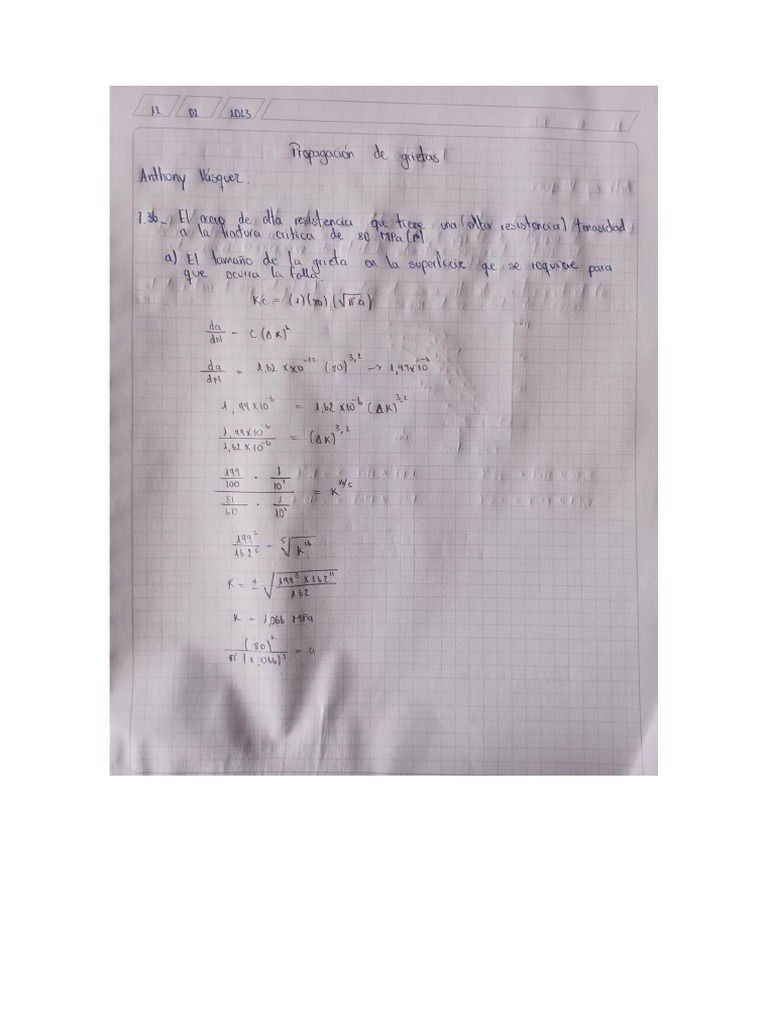 12 02 2023
Propagación de grietas
Anthony Vásquez.
1.36_, El acero de alta resistencia que tiene una (alta resistencia) tenacidad
a la fractura crítica de 80 MPa √m
a) El tamaño de la grieta en la superficie qe se requiere para
que ocurra la falla.
Kc = (1) (80) (√π a)
da/dN = C (ΔK)²
da/dN = 1,62 x 10⁻¹² (80)^3,2 → 1,99x10⁻⁶
1,99x10⁻⁶ = 1,62 x10⁻⁶ (ΔK)^3,2
1,99x10⁻⁶ / 1,62 x10⁻⁶ = (ΔK)^3,2
199/100 · 1/10⁶ / 81/60 · 1/10⁶ = K
199⁵/162⁵ = ⁵√K¹⁶
K = ±√
K = 1,066 MPa
(80)² / π (1,066)² = a